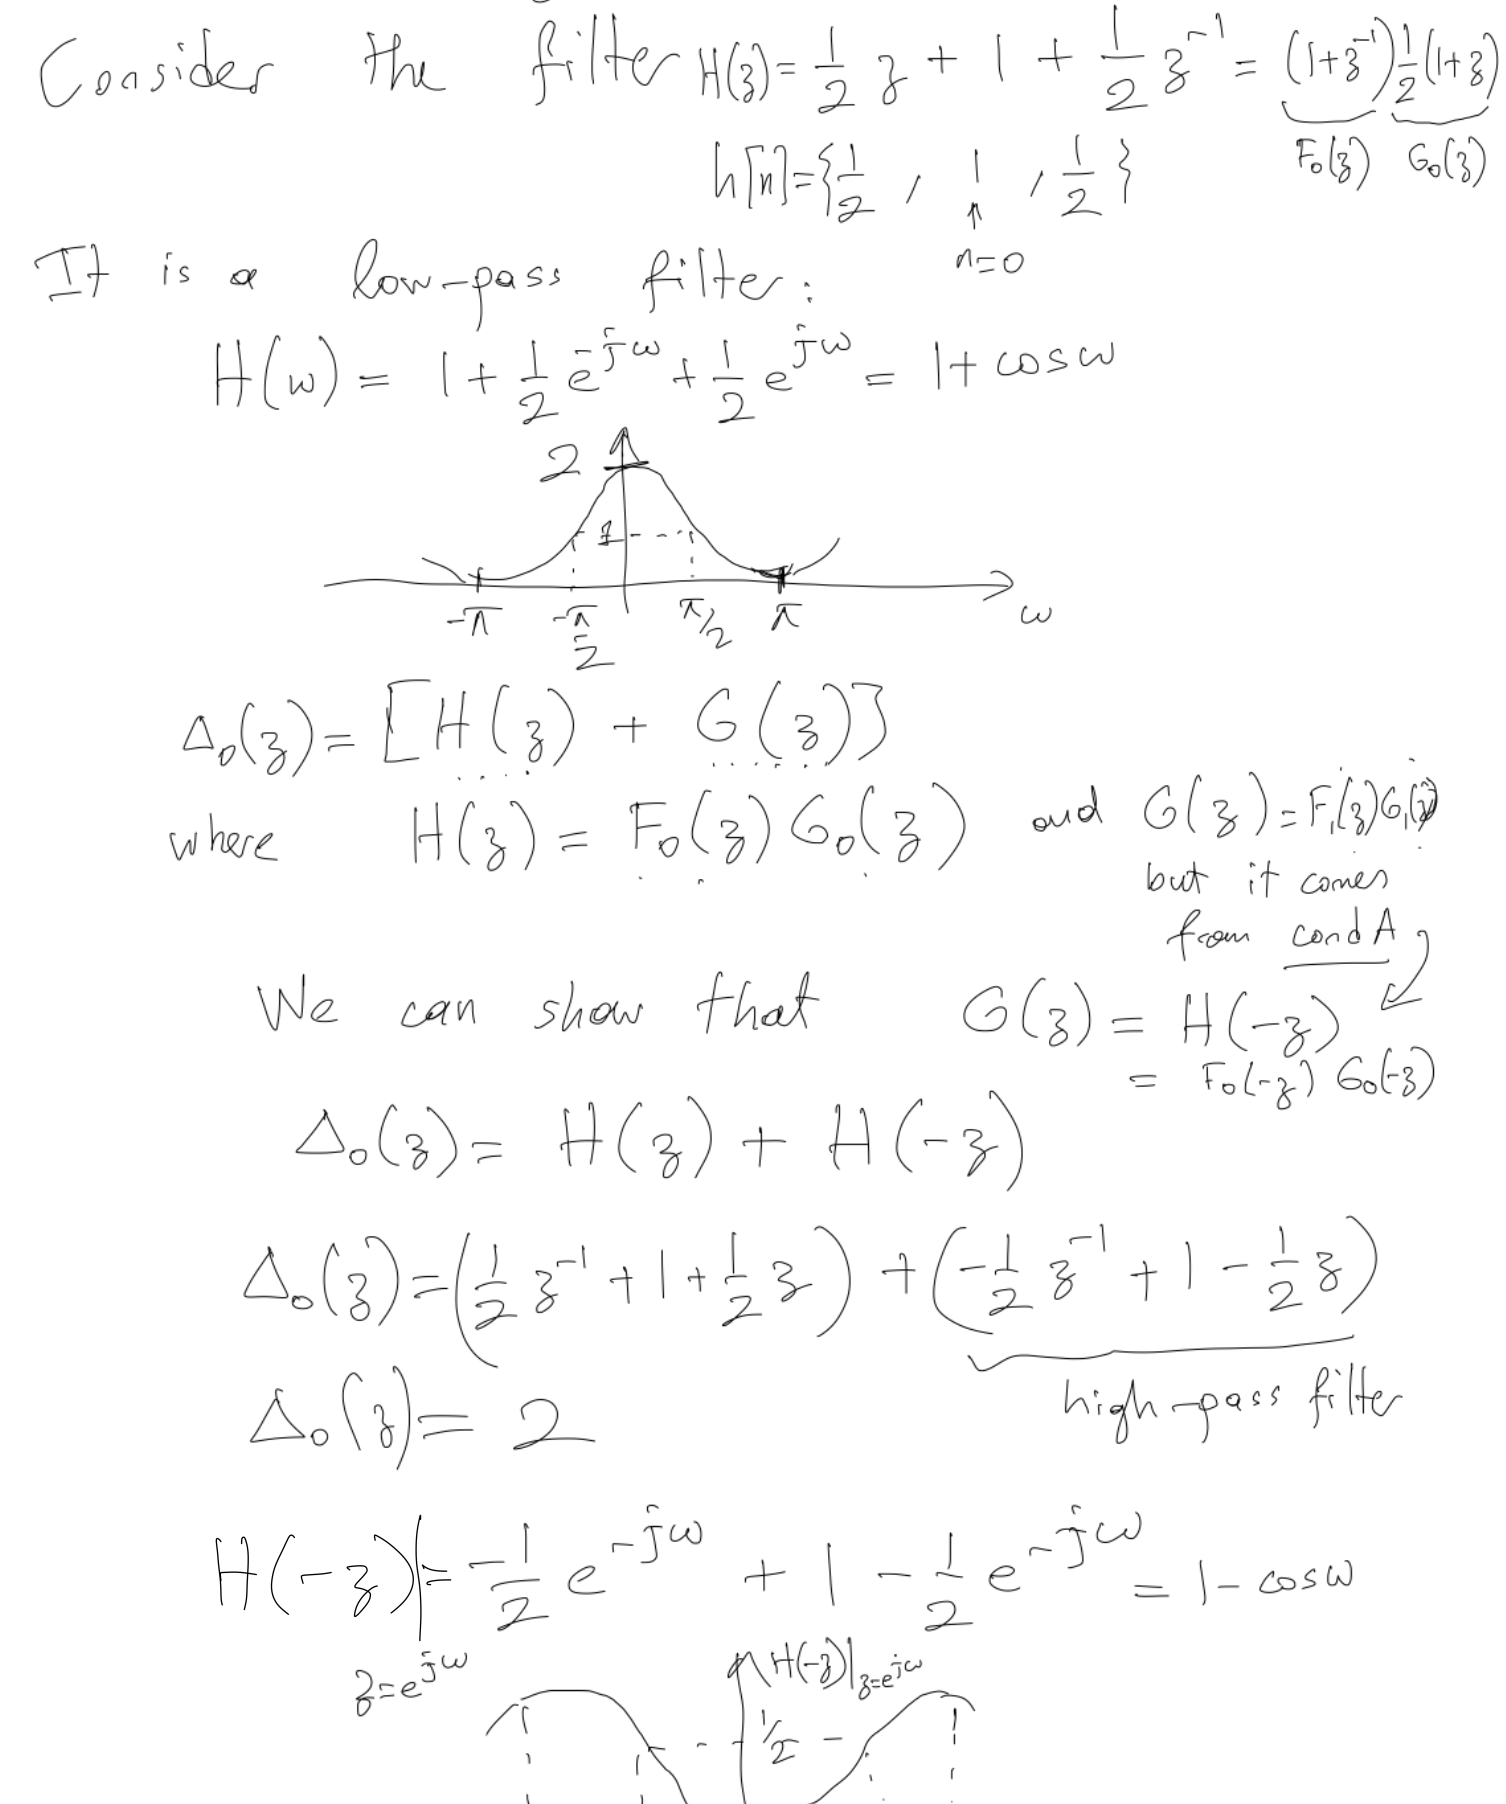 Consider the filter H(z) = 1/2 z + 1 + 1/2 z⁻¹ = (1+z⁻¹) 1/2 (1+z)
F₀(z) G₀(z)
h[n] = {1/2, 1, 1/2}
↑
n=0
It is a low-pass filter:
H(ω) = 1 + 1/2 e^(-jω) + 1/2 e^(jω) = 1 + cos ω
2
1
-π -π/2 π/2 π ω
Δ₀(z) = [H(z) + G(z)]
where H(z) = F₀(z) G₀(z) and G(z) = F₁(z)G₁(z)
but it comes
from cond A
We can show that G(z) = H(-z)
= F₀(-z) G₀(-z)
Δ₀(z) = H(z) + H(-z)
Δ₀(z) = (1/2 z⁻¹ + 1 + 1/2 z) + (-1/2 z⁻¹ + 1 - 1/2 z)
high-pass filter
Δ₀(z) = 2
H(-z)| = -1/2 e^(-jω) + 1 - 1/2 e^(-jω) = 1 - cos ω
z=e^(jω)
H(-z)|z=e^(jω)
1/2